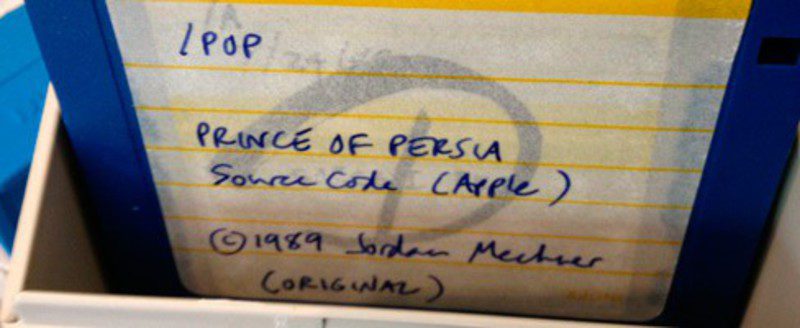 /POP
PRINCE OF PERSIA
Source Code (Apple)
©1989 Jordan Mechner
(ORIGINAL)